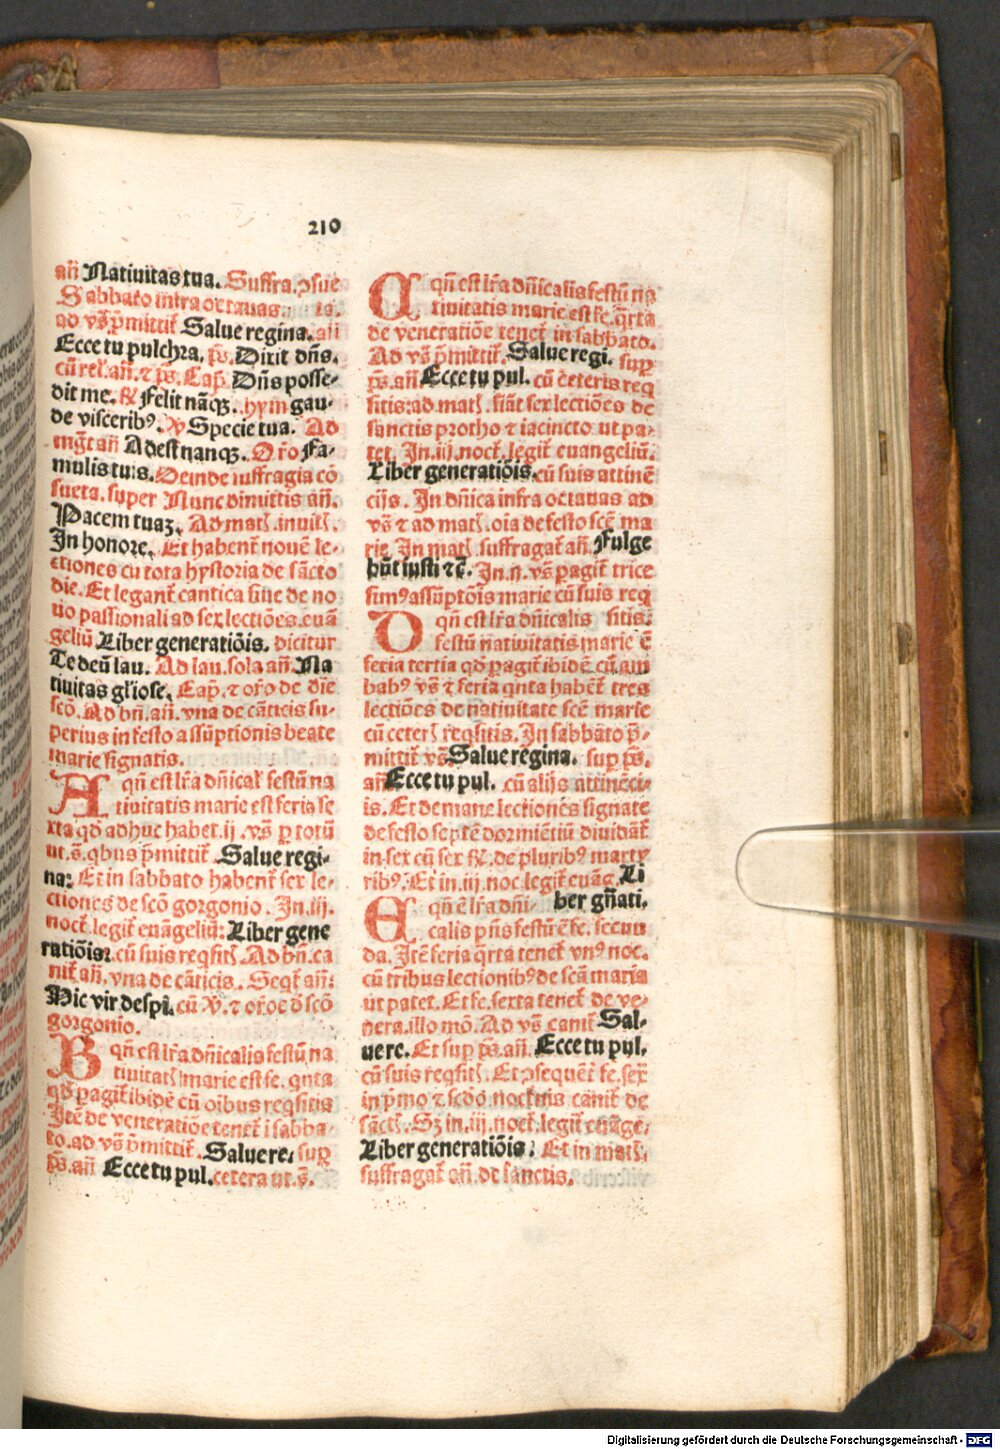 210
an̄ Natiuitas tua. Suffra. ꝯsue
Sabbato infra octauas
ad vs̄ p̄mittit̄ Salue regina. an̄
Ecce tu pulchra. ps̄. Dixit dn̄s.
cū rel. an̄. ⁊ ps̄. Cap. Dn̄s posse-
dit me. ℟ Felix nāqꝫ. hym gau-
de visceribꝰ. ℣ Specie tua. Ad
mḡt an̄ Adest nanqꝫ. Oro Fa-
mulis tuis. Deinde suffragia cō
sueta. super Nunc dimittis an̄.
Pacem tuaꝫ. Ad matꝭ. inuitꝭ.
In honore. Et habent̄ nouē le-
ctiones cū tota hystoria de sācto
die. Et legant̄ cantica siue de no
uo passionali ad sex lectiōes. euā
geliū Liber generatiōis. dicitur
Te deū lau. Ad lau. sola an̄. Na
tiuitas gl̄iose. Cap. ⁊ oro de die
scō. Ad bn̄. an̄. vna de cāticis su-
perius in festo assūptionis beate
marie signatis.
A qn̄ est lr̄a dn̄ical̄ festū na
tiuitatis marie est feria se
xta qd̄ adhuc habet. ij. vs̄ p totū
ut. s̄. qbus p̄mittit̄ Salue regi-
na: Et in sabbato habent̄ sex le-
ctiones de scō gorgonio. In. iij.
noct̄. legit̄ euāgeliū: Liber gene
ratiōis: cū suis reqsitꝭ. Ad bn̄. ca
nit̄ an̄. vna de cāticis. Seqt̄ an̄:
Hic vir despi. cū ℣. ⁊ orōe d̄ scō
gorgonio.
B qn̄ est lr̄a dn̄icalis festū na
tiuitatꝭ marie est fe. qnta
qd̄ pagit̄ ibidē cū oibus reqsitis
Itē de veneratiōe tenet̄ i sabba-
to. ad vs̄ p̄mittit̄. Salue re. sup
ps̄. an̄ Ecce tu pul. cetera ut. s̄.
C qn̄ est lr̄a dn̄icalis festū na
tiuitatis marie est fe. qrta
de veneratiōe tenet̄ in sabbato.
Ad vs̄ p̄mittit̄. Salue regi. sup
ps̄. an̄ Ecce tu pul. cū ceteris req
sitis: ad matꝭ. fiāt sex lectiōes de
sanctis protho ⁊ iacincto ut pa-
tet. In. iij. noct̄. legit̄ euangeliū.
Liber generatiōis. cū suis attinē
cijs. In dn̄ica infra octauas ad
vs̄ ⁊ ad matꝭ. oīa de festo scē ma
rie. In matꝭ suffragat̄ an̄. Fulge
būt iusti ⁊c̄. In. ij. vs̄ pagit̄ trice
simꝰ assūptōis marie cū suis req
D qn̄ est lr̄a dn̄icalis sitis.
festū natiuitatis marie ē
feria tertia qd̄ pagit̄ ibidē cū am
babꝰ vs̄ ⁊ feria qnta habēt̄ tres
lectiōes de natiuitate scē marie
cū ceterꝭ reqsitis. In sabbato p̄-
mittit̄ vs̄ Salue regina. sup ps̄.
an̄ Ecce tu pul. cū alijs attinēci-
is. Et de mane lectiones signate
de festo septē dormiētiū diuidāt̄
in sex cū sex ℟. de pluribꝰ marty
ribꝰ. Et in. iij. noc. legit̄ euāg. Li
E qn̄ ē lr̄a dn̄i- ber gn̄ati.
calis pn̄s festū ē fe. secun
da. Itē feria qrta tenet̄ vnꝰ noc.
cū tribus lectionibꝰ de scā maria
ut patet. Et fe. sexta tenet̄ de ve-
nera. illo mō. Ad vs̄ canit̄ Sal-
ue rc. Et sup ps̄. an̄. Ecce tu pul.
cū suis reqsitꝭ. Et ꝯsequēt̄ fe. sex
in p̄mo ⁊ scdō nocturnis canit̄ de
sāctꝭ. Sꝫ in. iij. noct̄. legit̄ euāge.
Liber generatiōis: Et in matꝭ.
suffragat̄ an̄. de sanctis.
Digitalisierung gefördert durch die Deutsche Forschungsgemeinschaft - DFG